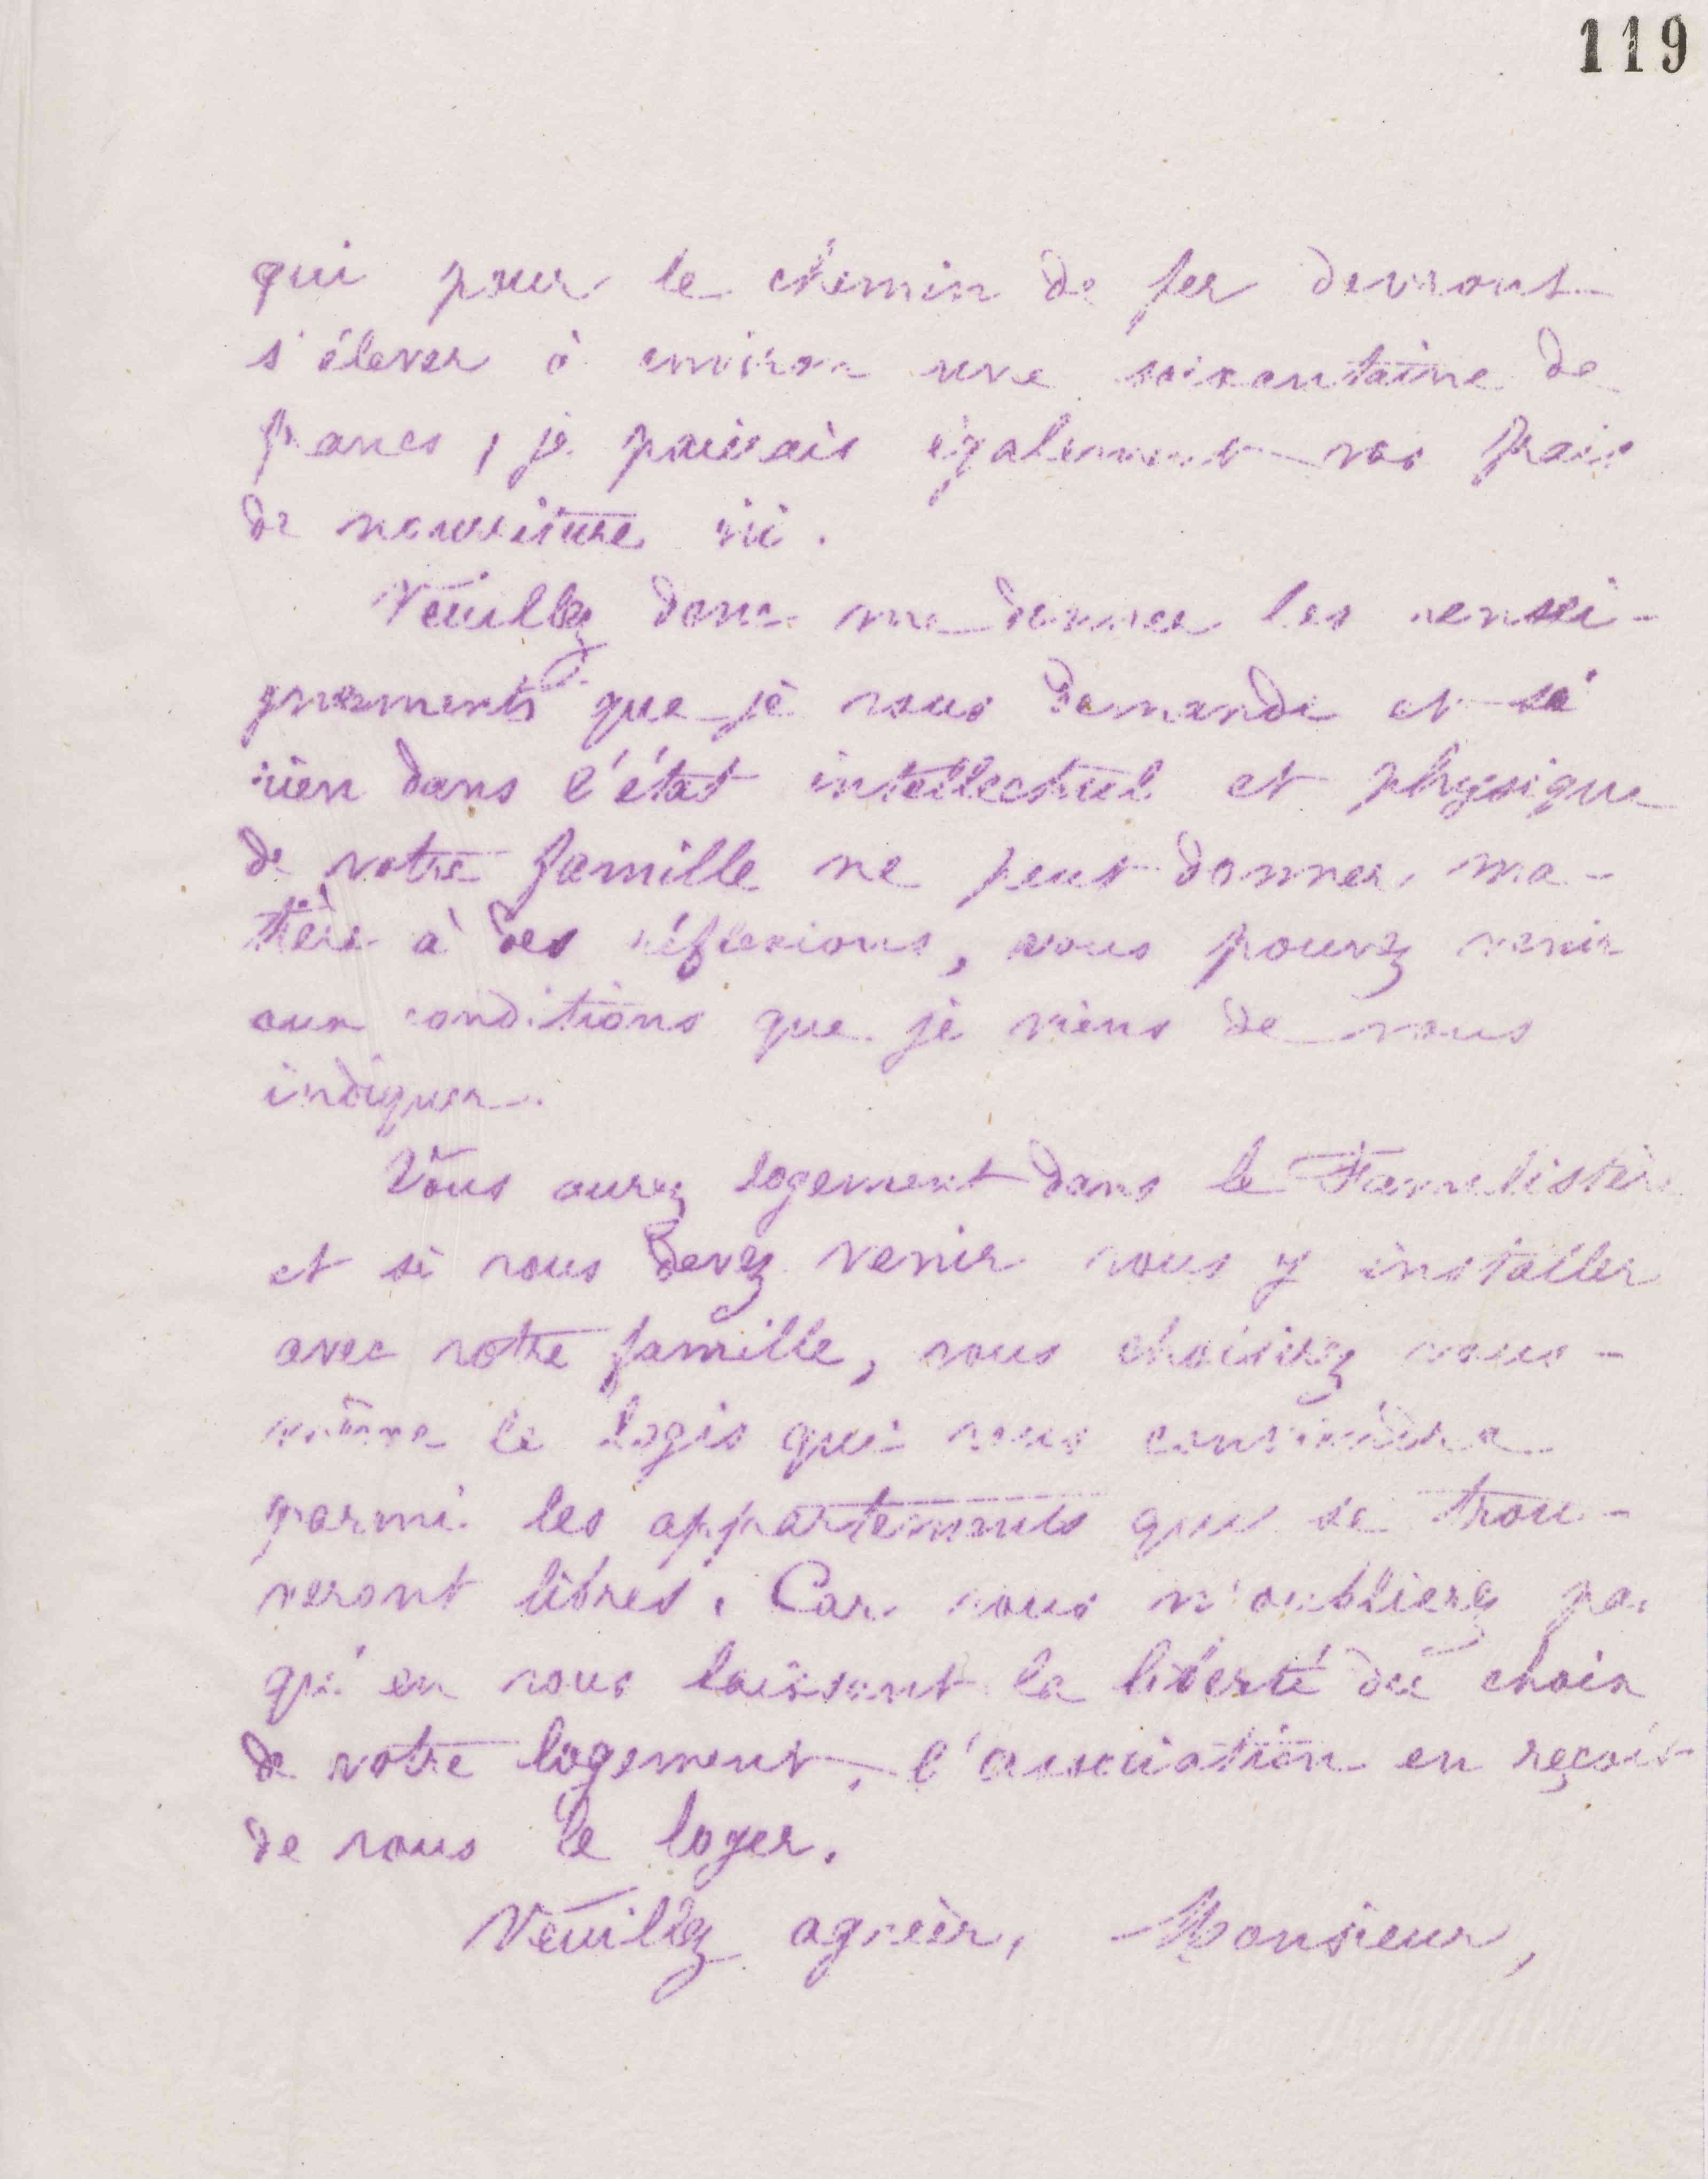 119
qui pour le chemin de fer devront
s'élever à environ une soixantaine de
francs, je paierais également vos frais
de nourriture ici.
Veuillez donc me donner les rensei-
gnements que je vous demande et si
rien dans l'état intellectuel et physique
de votre famille ne peut donner ma-
tière à des réflexions, vous pouvez venir
aux conditions que je viens de vous
indiquer.
Vous aurez logement dans le Familistère
et si vous devez venir vous y installer
avec votre famille, vous choisirez vous-
même le logis qui vous conviendra
parmi les appartements qui se trou-
veront libres. Car vous n'oublierez pas
qu'en vous laissant la liberté du choix
de votre logement, l'association en reçoit
de vous le loyer.
Veuillez agréer, Monsieur,